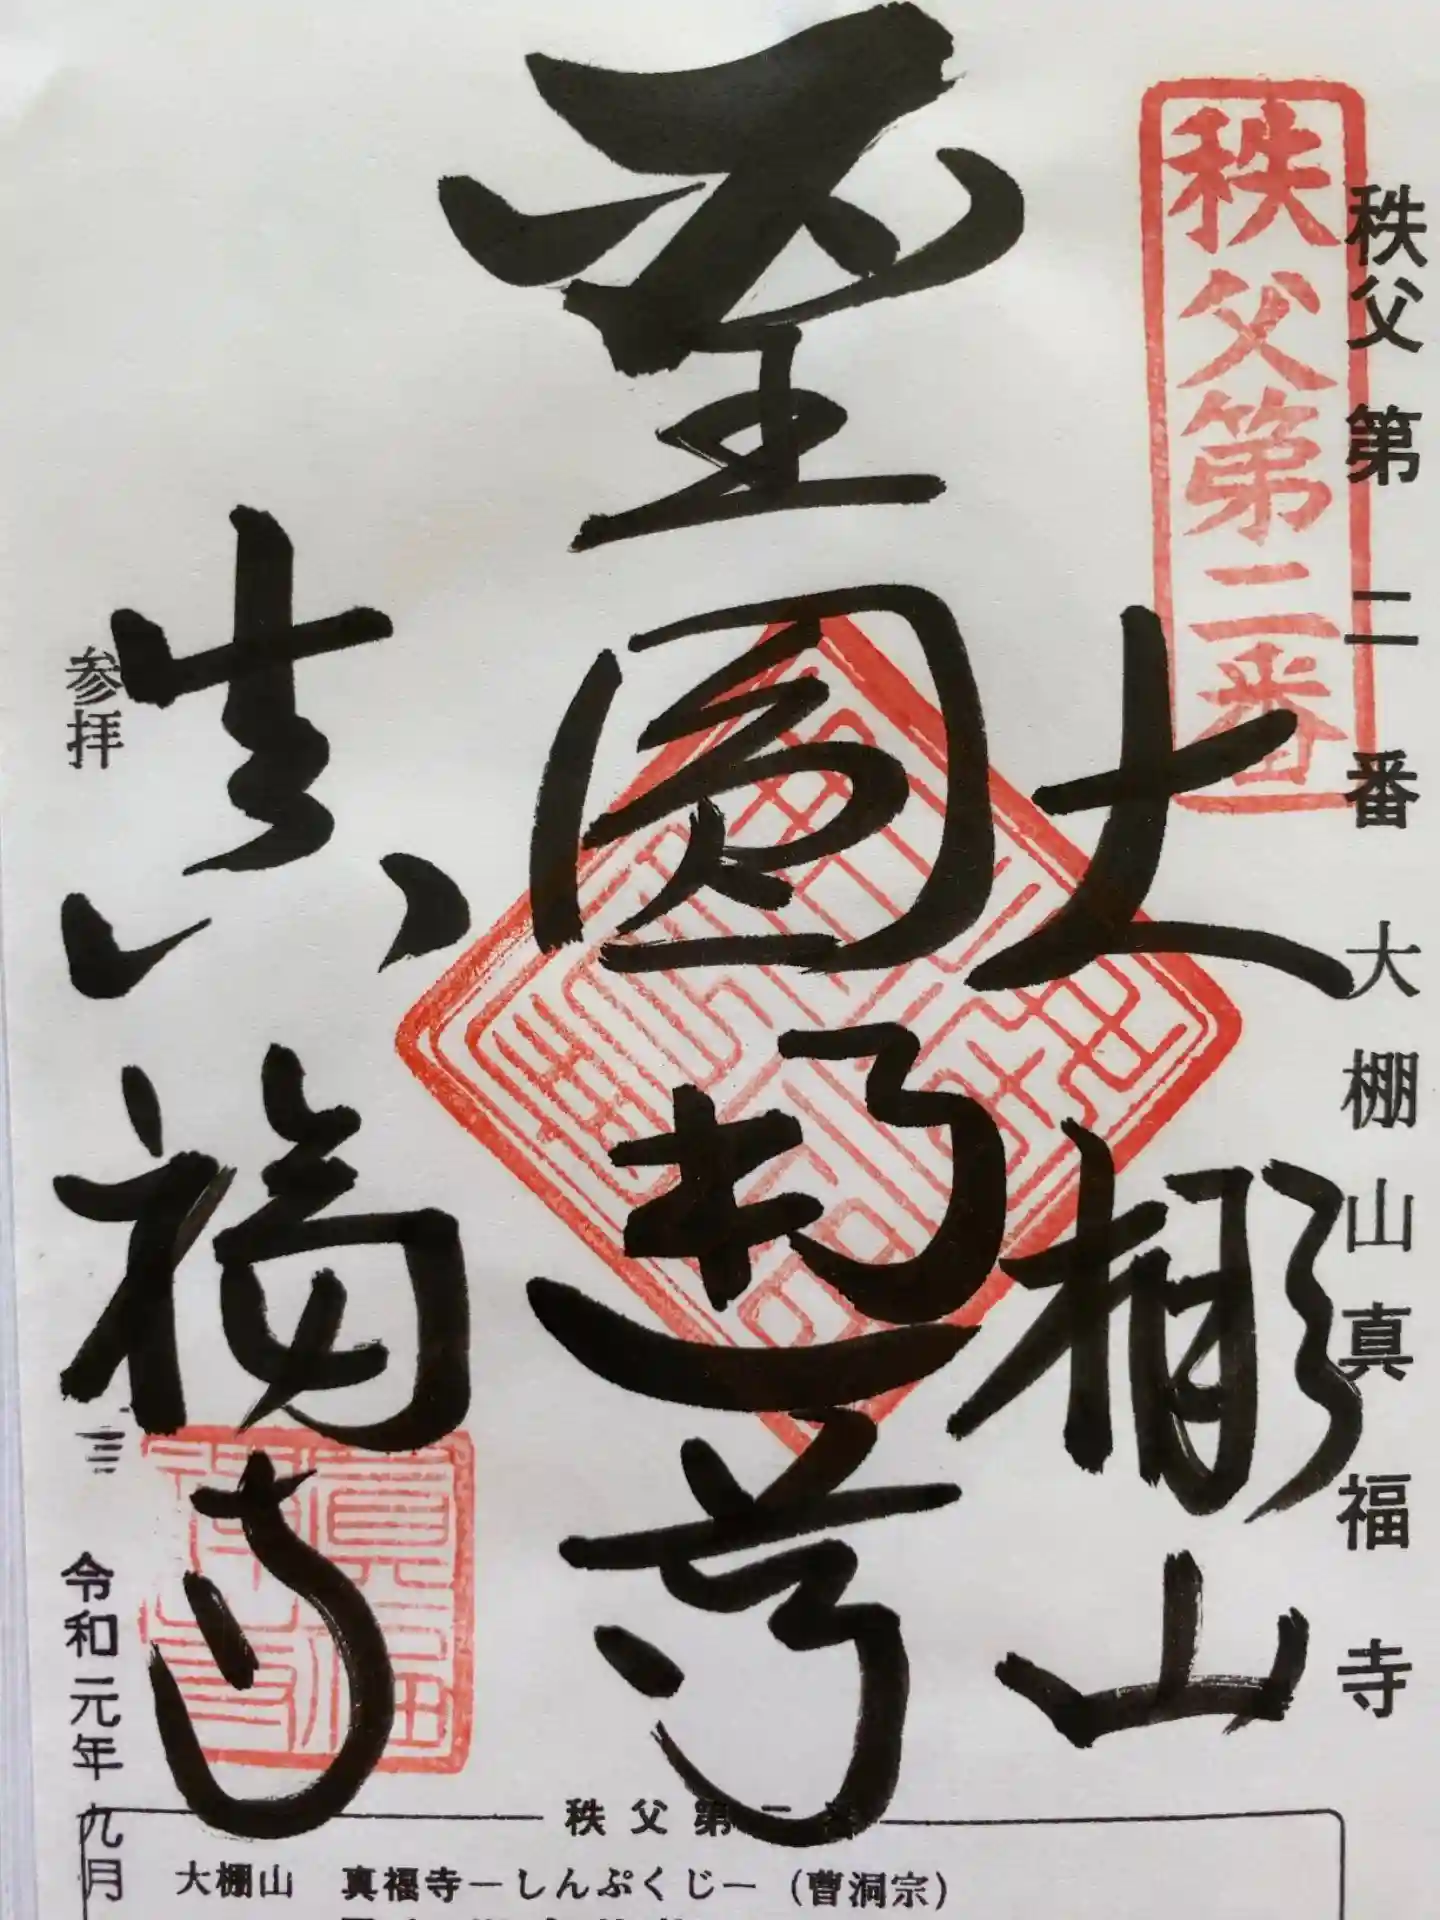 秩父第二番 大棚山真福寺
秩父第二番
大棚山
聖圓通尊
真福寺
参拝
令和元年 九月
秩父第二番
大棚山 真福寺－しんぷくじ－（曹洞宗）